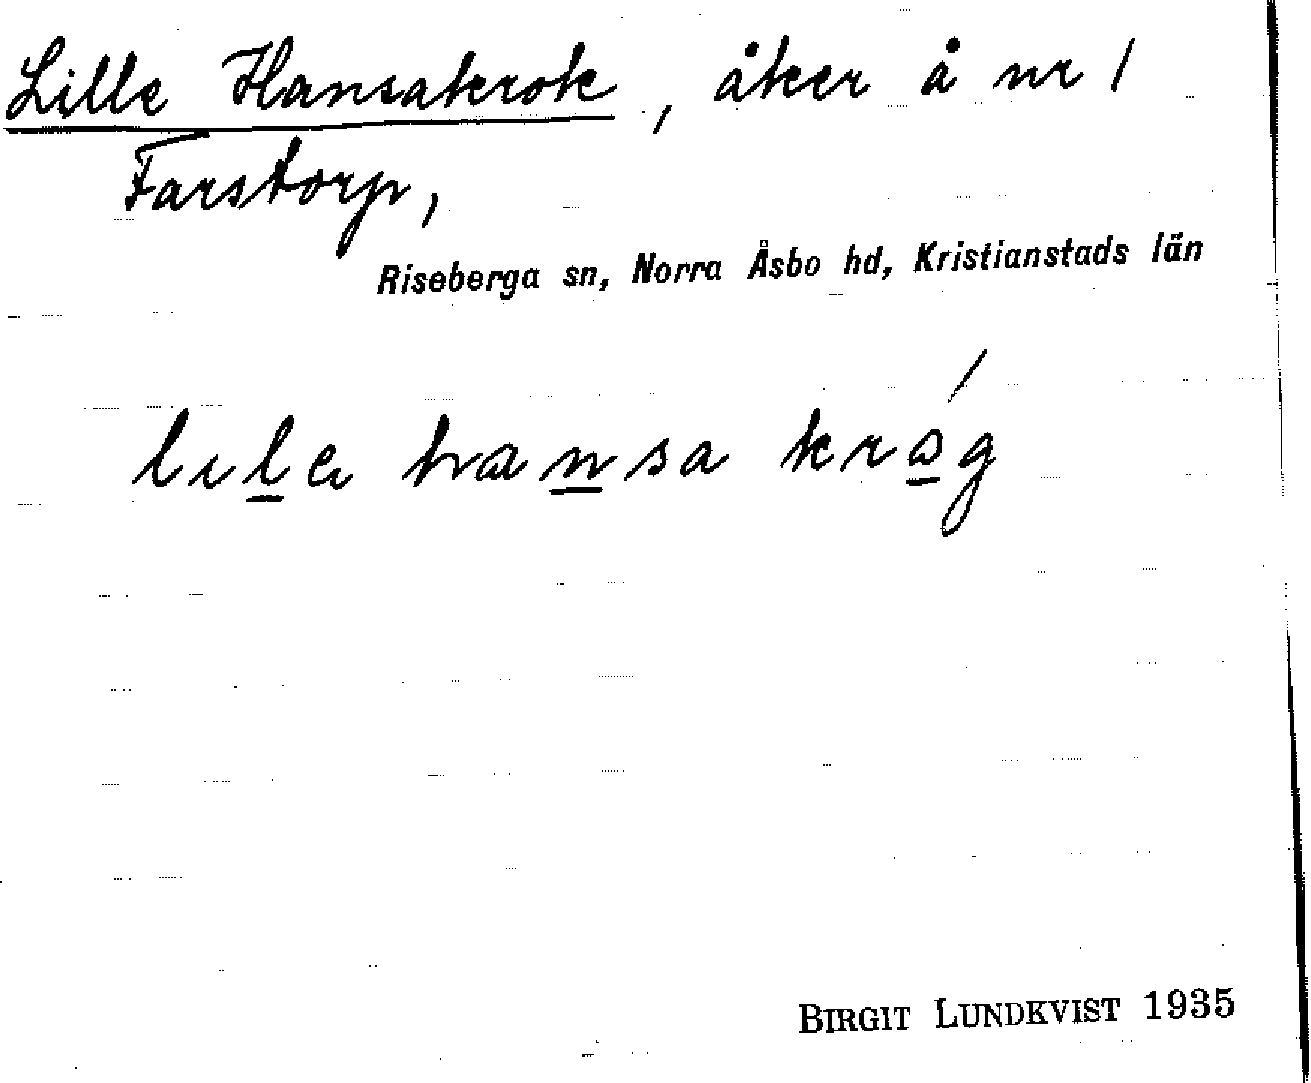 Lille Hansakrok, åker å nr 1
Farstorp,
Riseberga sn, Norra Åsbo hd, Kristianstads län
lıle hansa kråg
BIRGIT LUNDKVIST 1935